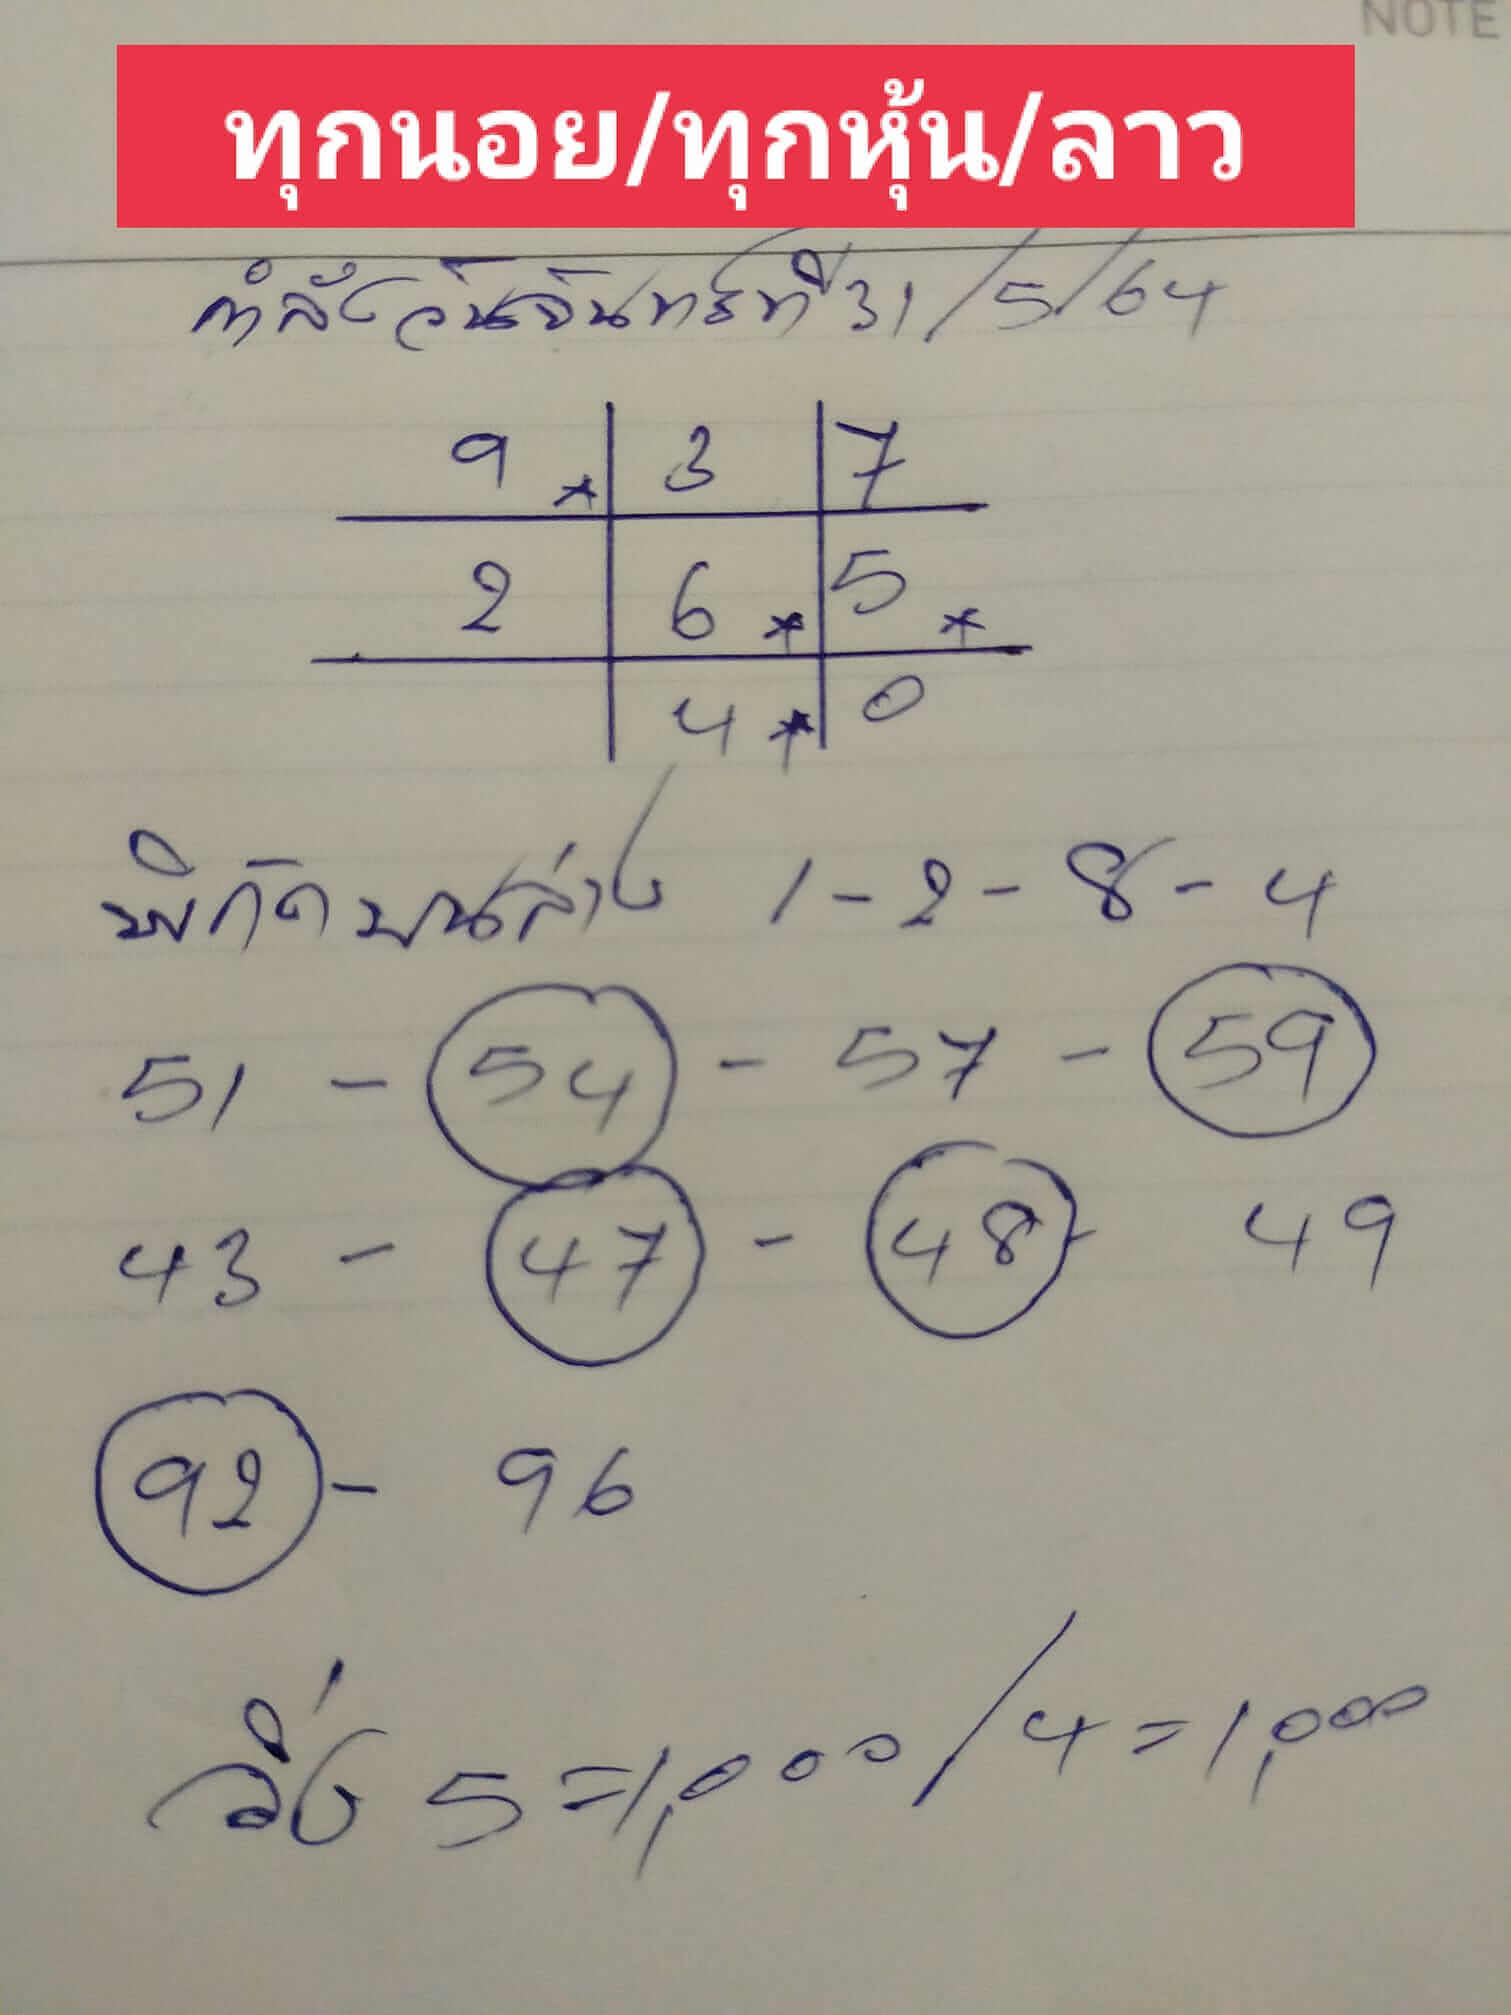 NOTE
ทุกนอย/ทุกหุ้น/ลาว
กำลังวันจันทร์ที่ 31/5/64
9 * 3 7
2 6 * 5 *
4 * 0
พิกัดบนล่าง 1-2-8-4
51 - 54 - 57 - 59
43 - 47 - 48 - 49
92 - 96
วิ่ง 5 = 1,000 / 4 = 1,000